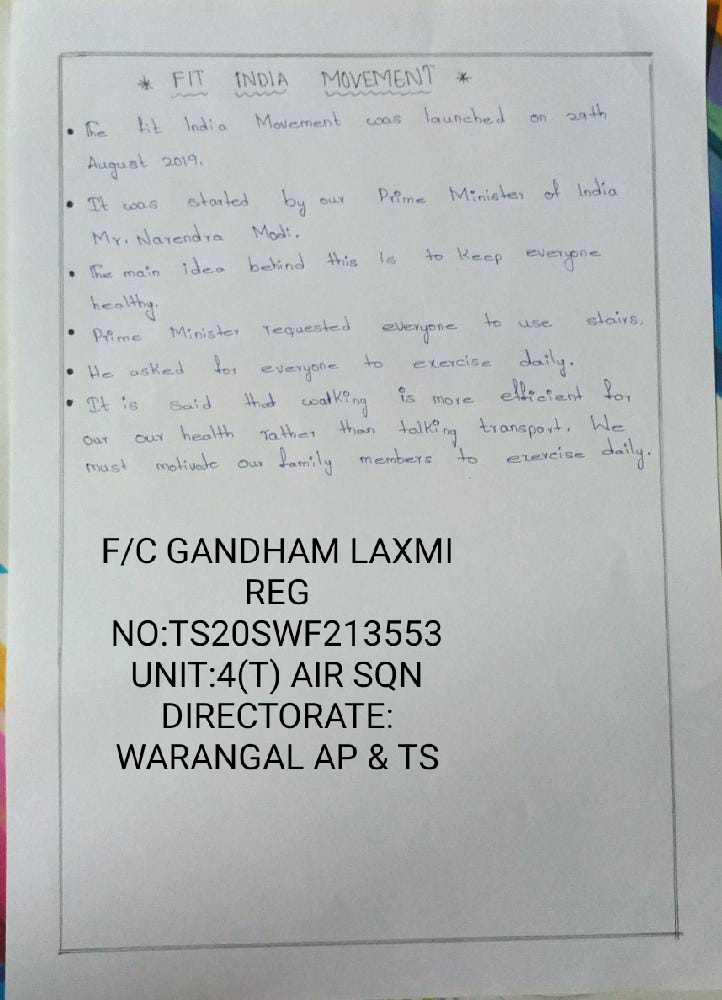 * FIT INDIA MOVEMENT *
• The fit India Movement was launched on 29th
August 2019.
• It was started by our Prime Minister of India
Mr. Narendra Modi.
• The main idea behind this is to keep everyone
healthy.
• Prime Minister requested everyone to use stairs.
• He asked for everyone to exercise daily.
• It is said that walking is more efficient for
our our health rather than talking transport. We
must motivate our family members to exercise daily.
F/C GANDHAM LAXMI
REG
NO:TS20SWF213553
UNIT:4(T) AIR SQN
DIRECTORATE:
WARANGAL AP & TS